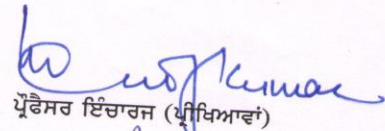 Kumar
ਪ੍ਰੌਫੈਸਰ ਇੰਚਾਰਜ (ਪ੍ਰੀਖਿਆਵਾਂ)